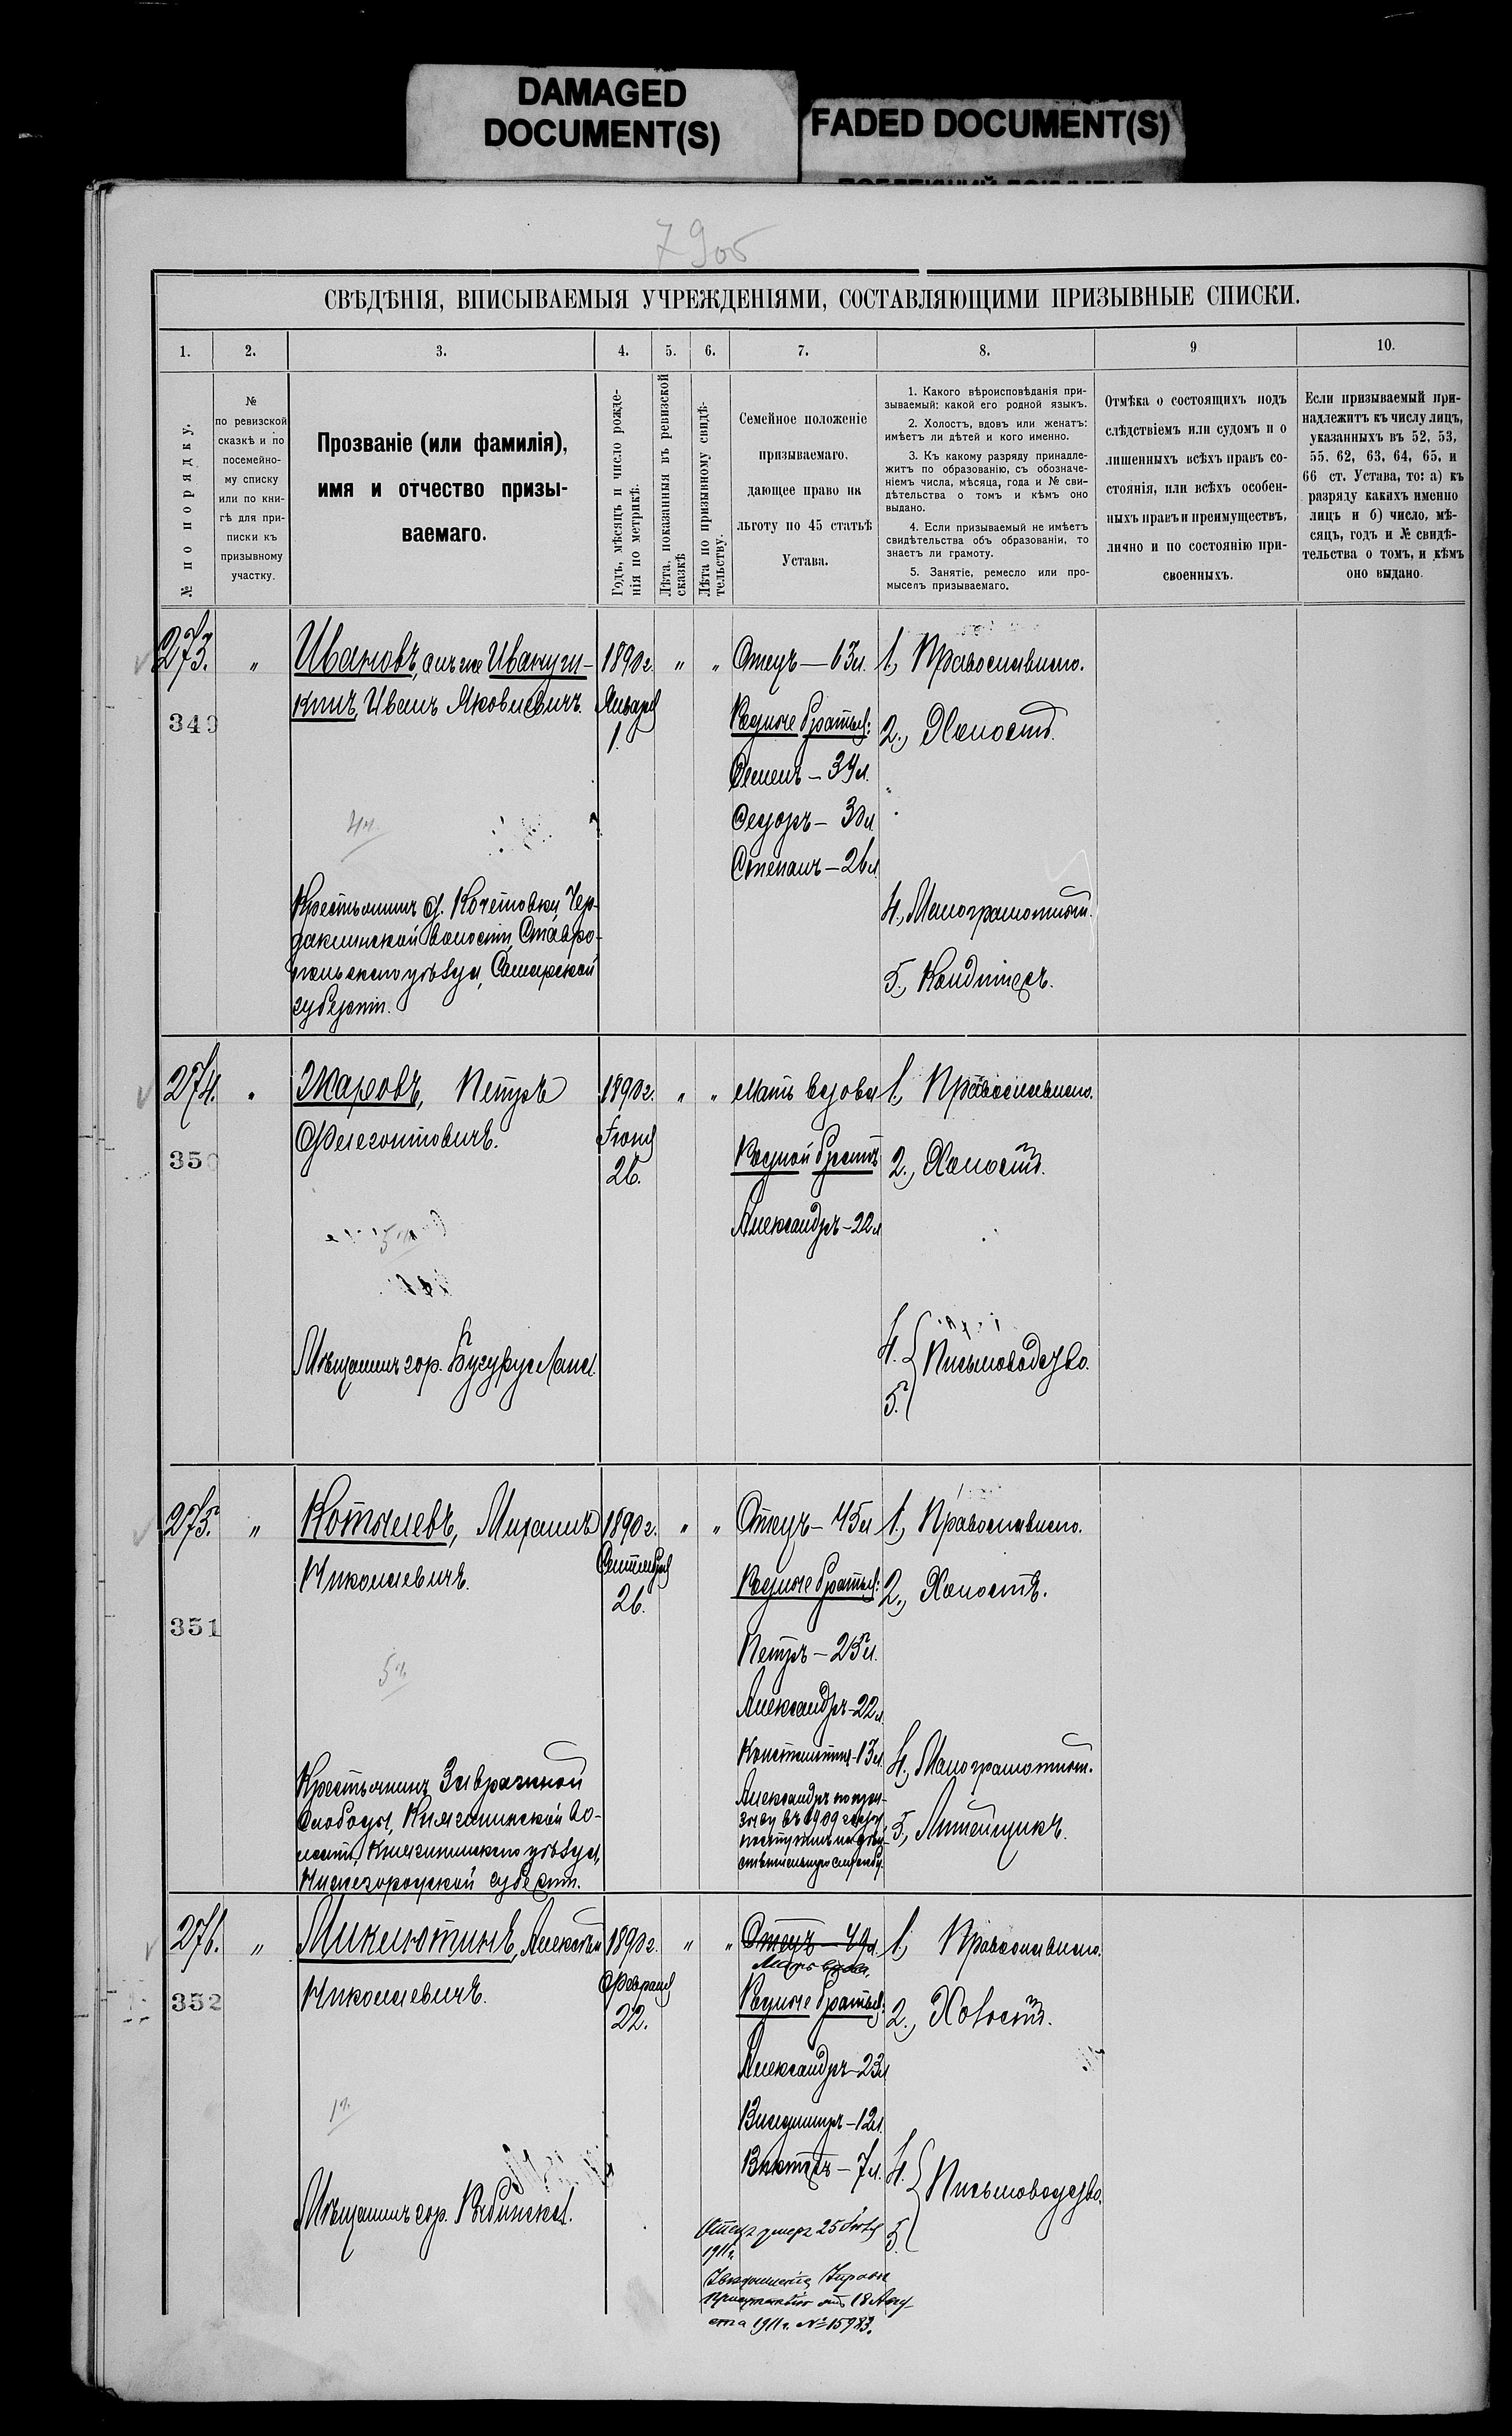 DAMAGED
DOCUMENT(S)
FADED DOCUMENT(S)
СВѢДѢНІЯ, ВПИСЫВАЕМЫЯ УЧРЕЖДЕНІЯМИ, СОСТАВЛЯЮЩИМИ ПРИЗЫВНЫЕ СПИСКИ.
1. 2. 3. 4. 5. 6. 7. 8. 9 10.
№ по порядку.
№
по ревизской
сказкѣ и по
посемейно-
му списку
или по кни-
гѣ для при-
писки къ
призывному
участку.
Прозваніе (или фамилія),
имя и отчество призы-
ваемаго.
Годъ, мѣсяцъ и число рожде-
нія по метрикѣ.
Лѣта, показанныя въ ревизской
сказкѣ
Лѣта по призывному свидѣ-
тельству.
Семейное положеніе
призываемаго,
дающее право на
льготу по 45 статьѣ
Устава.
1. Какого вѣроисповѣданія при-
зываемый: какой его родной языкъ.
2. Холостъ, вдовъ или женатъ:
имѣетъ ли дѣтей и кого именно.
3. Къ какому разряду принадле-
житъ по образованію, съ обозначе-
ніемъ числа, мѣсяца, года и № сви-
дѣтельства о томъ и кѣмъ оно
выдано.
4. Если призываемый не имѣетъ
свидѣтельства объ образованіи, то
знаетъ ли грамоту.
5. Занятіе, ремесло или про-
мыселъ призываемаго.
Отмѣка о состоящихъ подъ
слѣдствіемъ или судомъ и о
лишенныхъ всѣхъ правъ со-
стоянія, или всѣхъ особен-
ныхъ правъ и преимуществъ,
лично и по состоянію при-
своенныхъ.
Если призываемый при-
надлежитъ къ числу лицъ,
указанныхъ въ 52, 53,
55. 62, 63, 64, 65, и
66 ст. Устава, то: а) къ
разряду какихъ именно
лицъ и б) число, мѣ-
сяцъ, годъ и № свидѣ-
тельства о томъ, и кѣмъ
оно выдано.
273. „
349
Ивановъ, онъ же Ивануш-
кинъ, Иванъ Яковлевичъ.
Крестьянинъ д. Кочетовки, Чер-
даклинской волости, Ставро-
польскаго уѣзда, Самарской
губерніи.
1890 г.
Января
1.
„ „
Отецъ — 63 л.
Родные братья:
Семенъ — 34 л.
Федоръ — 30 л.
Степанъ — 26 л.
1, Православнаго.
2., Холостъ.
4., Малограмотный.
5., Кондитеръ.
274. „
350
Жаровъ, Петръ
Фелегонтовичъ.
Мѣщанинъ гор. Бугуруслана.
1890 г.
Іюня
26.
„ „
Мать вдова
Родной братъ
Александръ — 22 л
1, Православнаго.
2., Холостъ.
4.
5.
Письмоводство.
275. „
351
Котылевъ, Михаилъ
Николаевичъ.
Крестьянинъ Завражной
слободы, Княгининской во-
лости, Княгининскаго уѣзда,
Нижегородской губерніи.
1890 г.
Сентября
26.
„ „
Отецъ — 45 л
Родные братья:
Петръ — 25 л.
Александръ — 22 л.
Константинъ — 13 л
Александръ по при-
зыву въ 1909 году
поступилъ на дѣй-
ствительную службу.
1, Православнаго.
2., Холостъ.
4., Малограмотный.
5., Литейщикъ.
276. „
352
Миклютинъ, Алексѣй
Николаевичъ.
Мѣщанинъ гор. Рыбинска.
1890 г.
Февраля
22.
„ „
Отецъ — 49 л.
Мать вдова.
Родные братья:
Александръ — 23 л
Владиміръ — 12 л.
Викторъ — 7 л.
Отецъ умеръ 25 Іюля
1911 г.
18 Авгу-
ста 1911 г. № 15983.
1, Православнаго.
2., Холостъ.
4.
5.
Письмоводство.